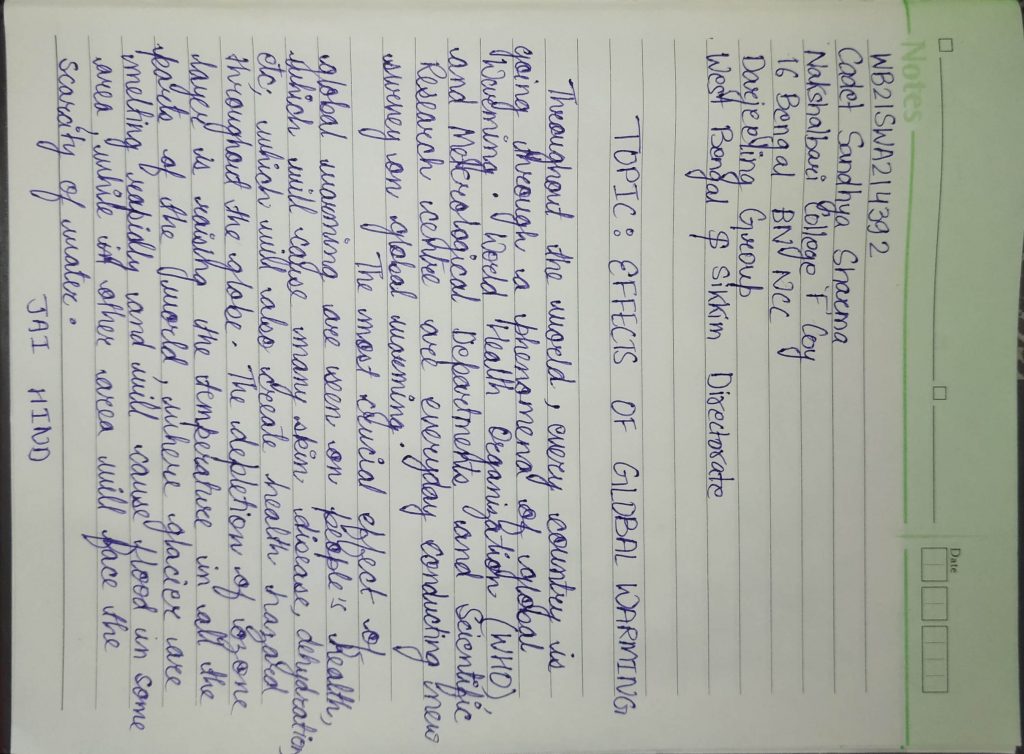 Notes
Date
WB21SWA214392
Cadet Sandhya Sharma
Nakshalbari College 'F' Coy
16 Bengal BN NCC
Darjeeling Group
West Bengal & Sikkim Directorate
TOPIC: EFFECTS OF GLOBAL WARMING
Throughout the world, every country is
going through a phenomena of global
Warming. World Health Organization (WHO),
and Metrological Departments and Scientific
Research centre are everyday conducting new
survey on global warming.
The most crucial effect of
global warming are seen on people's health,
which will cause many skin disease, dehydration
etc, which will also create health hazard
throughout the globe. The depletion of ozone
layer is raising the temperature in all the
parts of the world, where glacier are
melting rapidly and will cause flood in some
area, while in other area will face the
scarcity of water.
JAI HIND